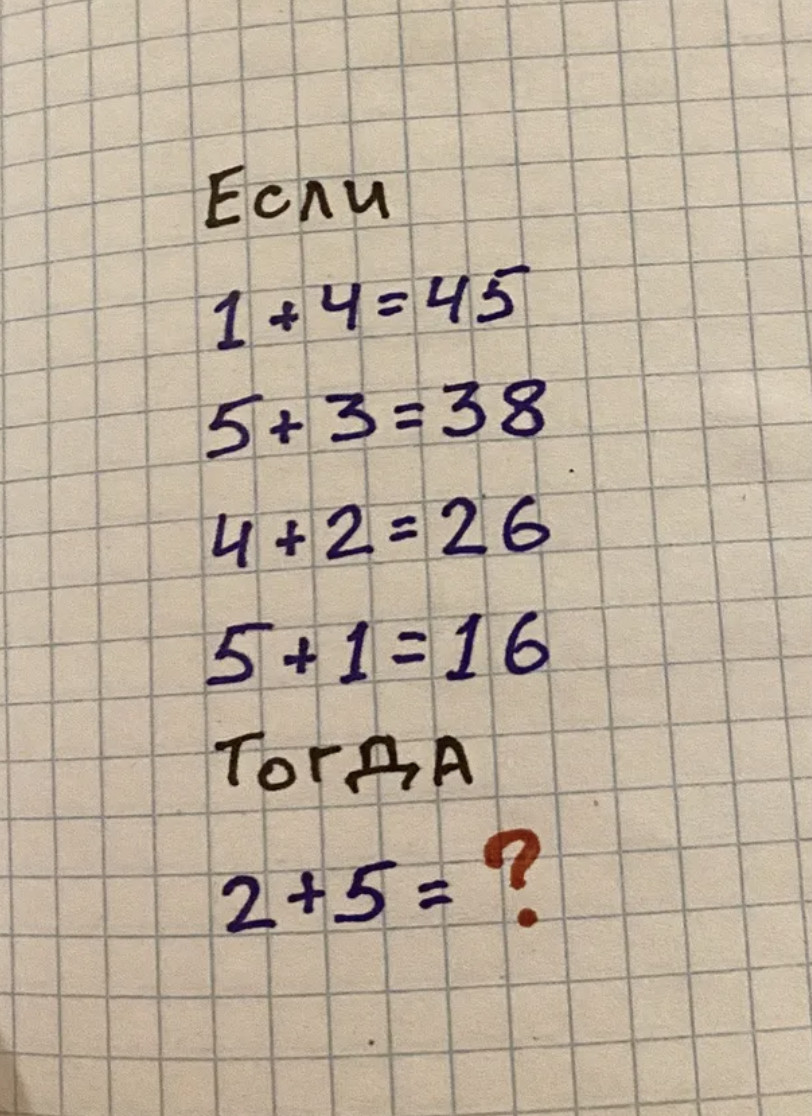 Если
1+4=45
5+3=38
4+2=26
5+1=16
Тогда
2+5=?